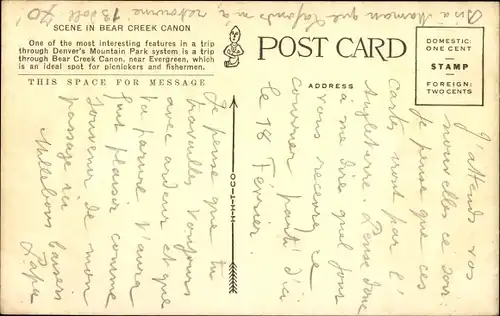 Dis à Maman que Lafond m'a
retourné 13 doll 70
SCENE IN BEAR CREEK CANON
One of the most interesting features in a trip
through Denver's Mountain Park system is a trip
through Bear Creek Canon, near Evergreen, which
is an ideal spot for picnickers and fishermen.
THIS SPACE FOR MESSAGE
POST CARD
DOMESTIC:
ONE CENT
STAMP
FOREIGN:
TWO CENTS
ADDRESS
C.T.H.H. Co
Je pense que tu
travailles toujours
avec ardeur et que
ta parure t'aura
fait plaisir comme
souvenir de mon
passage ici
Mille bons baisers
Papa
Le 18 Février
J'attends vos
nouvelles ce soir.
Je pense que ces
cartes vont par l'
Angleterre. Pense donc
à me dire quel jour
vous recevrez ce
courrier parti d'ici